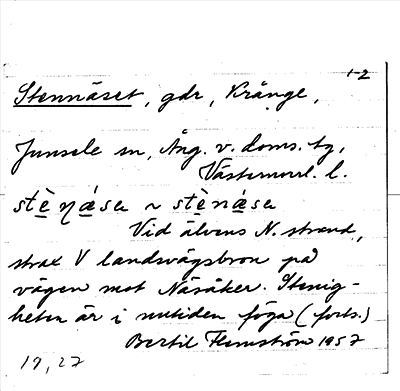 1-2
Stennäset, gdr, Krånge,
Junsele sn, Ång. v. doms. tg,
Västernorrl. l.
stè̱ŋá̱sa ~ stè̱ná̱sa
Vid älvens N. strand,
strax V landsvägsbron på
vägen mot Näsåker. Stenig-
heten är i nutiden föga (forts.)
Bertil Flemström 1957
19, 27